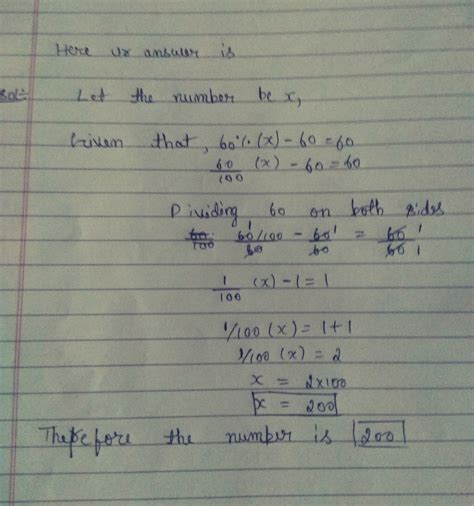 Here ur answer is
Sol:- Let the number be x,
Given that, 60%(x) - 60 = 60
60/100 (x) - 60 = 60
Dividing 60 on both sides
60/100 60/100/60 - 60/60 = 60/60
1/100 (x) - 1 = 1
1/100 (x) = 1+1
1/100 (x) = 2
x = 2x100
x = 200
Therefore the number is 200